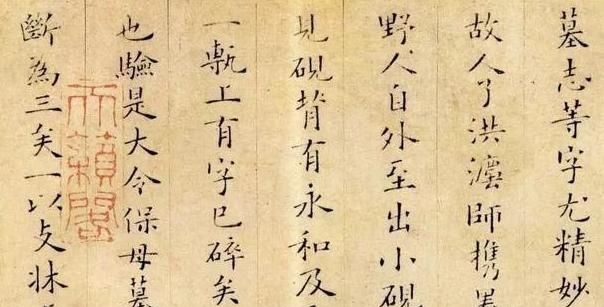 墓志等字尤精妙
故人了洪瀍師携
野人自外至出小硯
見硯背有永和及
一甎上有字已碎矣
也驗是大令保母墓
斷為三矣一以支牀
天籟閣